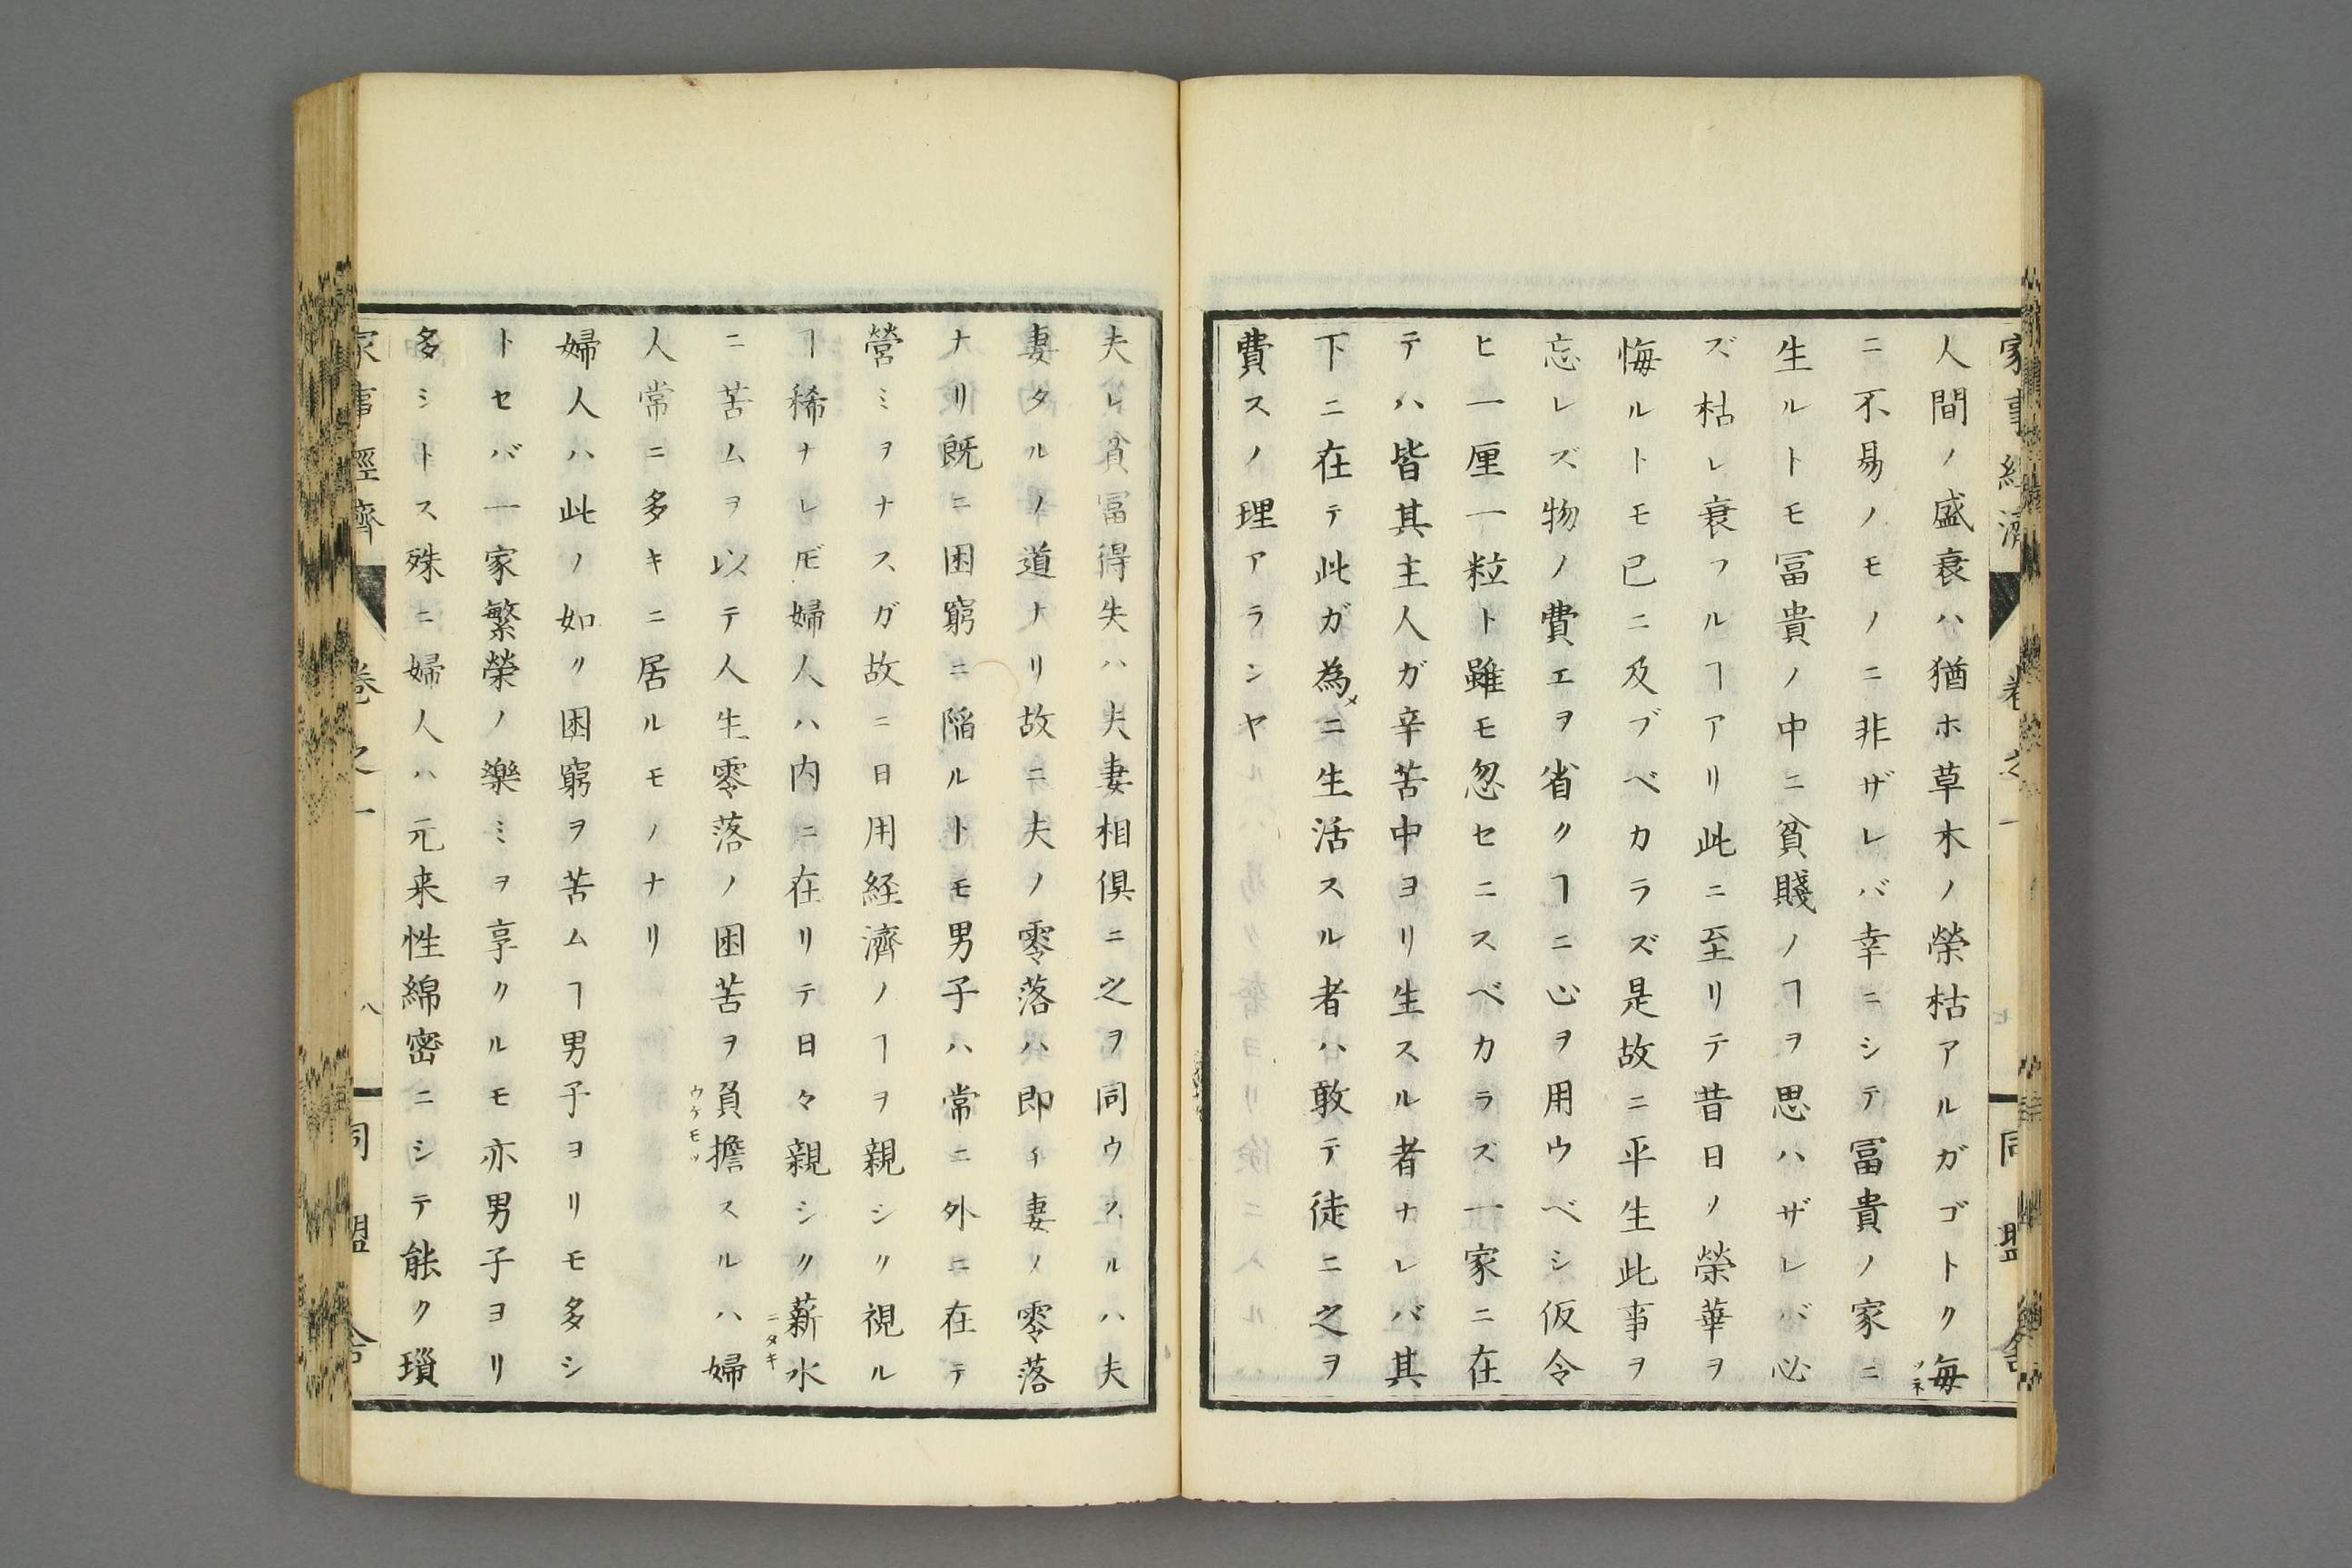 人間ノ盛衰ハ猶ホ草木ノ榮枯アルガゴトク毎
ツネ
ニ不易ノモノニ非ザレバ幸ニシテ冨貴ノ家ニ
生ルトモ冨貴ノ中ニ貧賤ノヿヲ思ハザレバ必
ズ枯レ衰フルヿアリ此ニ至リテ昔日ノ榮華ヲ
悔ルトモ已ニ及ブベカラズ是故ニ平生此事ヲ
忘レズ物ノ費エヲ省クヿニ心ヲ用ウベシ仮令
ヒ一厘一粒ト雖モ忽セニスベカラズ一家ニ在
テハ皆其主人ガ辛苦中ヨリ生スル者ナレバ其
下ニ在テ此ガ為メニ生活スル者ハ敢テ徒ニ之ヲ
費スノ理アランヤ
夫レ貧冨得失ハ夫妻相倶ニ之ヲ同ウスルハ夫
妻タルノ道ナリ故ニ夫ノ零落ハ即チ妻ノ零落
ナリ既ニ困窮ニ陥ルトモ男子ハ常ニ外ニ在テ
營ミヲナスガ故ニ日用経濟ノヿヲ親シク視ル
ヿ稀ナレ𪜈婦人ハ内ニ在リテ日々親シク薪水
ニタキ
ニ苦ムヲ以テ人生零落ノ困苦ヲ負擔スルハ婦
ウケモツ
人常ニ多キニ居ルモノナリ
婦人ハ此ノ如ク困窮ヲ苦ムヿ男子ヨリモ多シ
トセバ一家繁榮ノ樂ミヲ享クルモ亦男子ヨリ
多シトス殊ニ婦人ハ元来性綿密ニシテ能ク瑣
家事經濟 卷之一 八 同盟舎